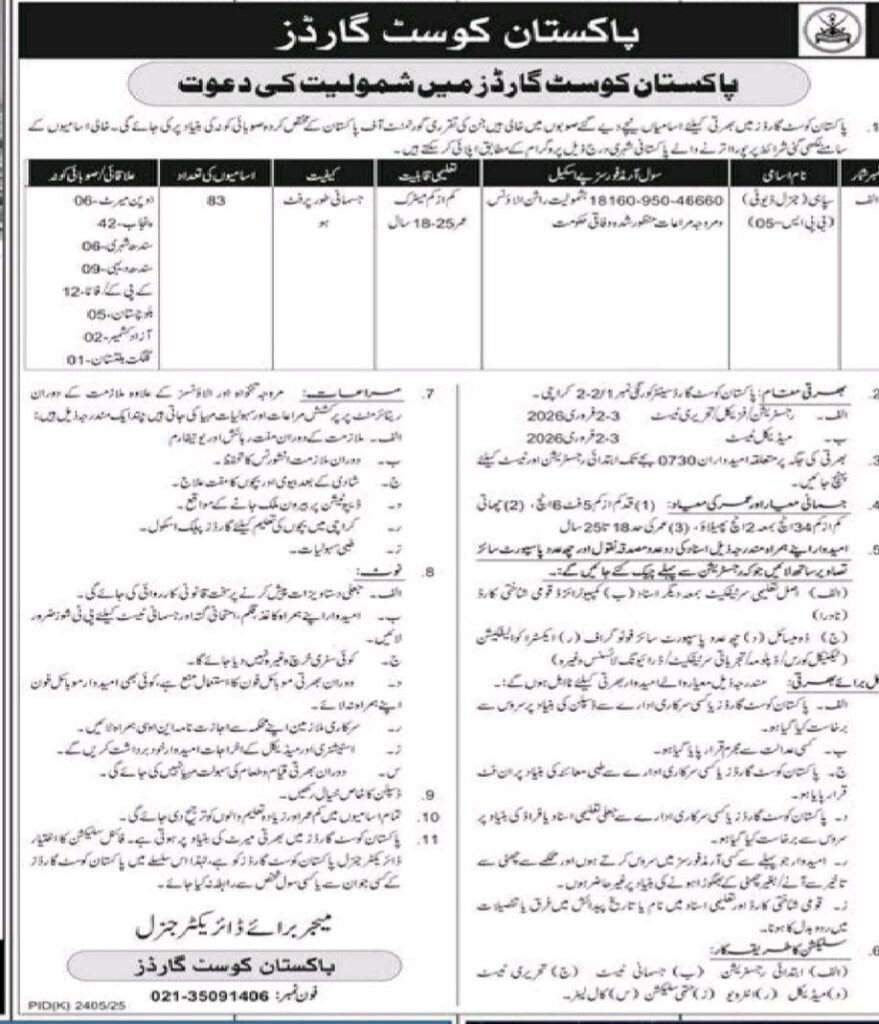 پاکستان کوسٹ گارڈز
پاکستان کوسٹ گارڈز میں شمولیت کی دعوت
1. پاکستان کوسٹ گارڈز میں بھرتی کیلئے اسامیاں نیچے دیے گئے صوبوں میں خالی ہیں جن کی تقرری گورنمنٹ آف پاکستان کے مختص کردہ صوبائی کوٹہ کی بنیاد پر کی جائے گی۔ خالی اسامیوں کے
سامنے لکھی گئی شرائط پر پورا اترنے والے پاکستانی شہری درج ذیل پروگرام کے مطابق اپلائی کر سکتے ہیں۔
نمبر شمار نام اسامی سول آرمڈ فورسز پے اسکیل تعلیمی قابلیت کیفیت اسامیوں کی تعداد علاقائی/صوبائی کوٹہ
الف سپاہی (جنرل ڈیوٹی) 18160-950-46660 بشمولیت راشن الاؤنس کم از کم میٹرک جسمانی طور پر فٹ 83 اوپن میرٹ-06
(بی پی ایس-05) ومروجہ مراعات منظور شدہ وفاقی حکومت عمر 25-18 سال ہو پنجاب-42
سندھ شہری-06
سندھ دیہی-09
کے پی کے/فاٹا-12
بلوچستان-05
آزاد کشمیر-02
گلگت بلتستان-01
2. بھرتی مقام: پاکستان کوسٹ گارڈ سینٹر کورنگی نمبر 2-2/1 کراچی۔
الف۔ رجسٹریشن/فزیکل/تحریری ٹیسٹ 2-3 فروری 2026
ب۔ میڈیکل ٹیسٹ 2-3 فروری 2026
3. بھرتی کی جگہ پر متعلقہ امیدواران 0730 بجے تک ابتدائی رجسٹریشن اور ٹیسٹ کیلئے
پہنچ جائیں۔
4. جسمانی معیار اور عمر کی معیاد: (1) قد کم از کم 5 فٹ 6 انچ، (2) چھاتی
کم از کم 34 انچ بمعہ 2 انچ پھیلاؤ، (3) عمر کی حد 18 تا 25 سال
5. امیدوار اپنے ہمراہ مندرجہ ذیل اسناد کی دو عدد مصدقہ نقول اور چھ عدد پاسپورٹ سائز
تصاویر ساتھ لائیں جو کہ رجسٹریشن سے پہلے چیک کئے جائیں گے:۔
(الف) اصل تعلیمی سرٹیفکیٹ بمعہ دیگر اسناد (ب) کمپیوٹرائزڈ قومی شناختی کارڈ
(نادرا)
(ج) ڈومیسائل (د) چھ عدد پاسپورٹ سائز فوٹو گراف (ر) ایکسٹرا کوالیفکیشن
(ٹیکنیکل کورس/ڈپلومہ/تجرباتی سرٹیفکیٹ/ڈرائیونگ لائسنس وغیرہ)
برائے بھرتی: مندرجہ ذیل معیار والے امیدوار بھرتی کیلئے نااہل ہوں گے:۔
الف۔ پاکستان کوسٹ گارڈز یا کسی سرکاری ادارے سے ڈسپلن کی بنیاد پر سروس سے
برخاست کیا گیا ہو۔
ب۔ کسی عدالت سے مجرم قرار پایا گیا ہو۔
ج۔ پاکستان کوسٹ گارڈز یا کسی سرکاری ادارے سے طبی معائنہ کی بنیاد پر ان فٹ
قرار پایا ہو۔
د۔ پاکستان کوسٹ گارڈز یا کسی سرکاری ادارے سے جعلی تعلیمی اسناد یا فراڈ کی بنیاد پر
سروس سے برخاست کیا گیا ہو۔
ر۔ امیدوار جو پہلے سے کسی آرمڈ فورسز میں سروس کرتے ہوں اور محکمے سے چھٹی سے
تاخیر سے آنے/بغیر چھٹی کے بھگوڑا ہونے کی بنیاد پر غیر حاضر ہوں۔
ز۔ قومی شناختی کارڈ اور تعلیمی اسناد میں نام یا تاریخ پیدائش میں فرق یا تفصیلات
میں ردوبدل کا ہونا۔
6. سلیکشن کا طریقہ کار:
(الف) ابتدائی رجسٹریشن (ب) جسمانی ٹیسٹ (ج) تحریری ٹیسٹ
(د) میڈیکل (ر) انٹرویو (ز) حتمی سلیکشن (س) کال لیٹر۔
7. مراعات: مروجہ تنخواہ اور الاؤنسز کے علاوہ ملازمت کے دوران
ریٹائرمنٹ پر پرکشش مراعات اور سہولیات مہیا کی جاتی ہیں چند ایک مندرجہ ذیل ہیں:
الف۔ ملازمت کے دوران مفت رہائش اور یونیفارم
ب۔ دوران ملازمت انشورنس کا تحفظ۔
ج۔ شادی کے بعد بیوی اور بچوں کا مفت علاج۔
د۔ ڈیپوٹیشن پر بیرون ملک جانے کے مواقع۔
ر۔ کراچی میں بچوں کی تعلیم کیلئے گارڈز پبلک اسکول۔
ز۔ طبی سہولیات۔
8. نوٹ:
الف۔ جعلی دستاویزات پیش کرنے پر سخت قانونی کارروائی کی جائے گی۔
ب۔ امیدوار اپنے ہمراہ کاغذ، قلم، امتحانی گتہ اور جسمانی ٹیسٹ کیلئے پی ٹی شوز ضرور
لائیں۔
ج۔ کوئی سفری خرچ وغیرہ نہیں دیا جائے گا۔
د۔ دوران بھرتی موبائل فون کا استعمال منع ہے، کوئی بھی امیدوار موبائل فون
اپنے ہمراہ نہ لائے۔
ر۔ سرکاری ملازمین اپنے محکمہ سے اجازت نامہ این او سی ہمراہ لائیں۔
ز۔ اسٹیشنری اور میڈیکل کے اخراجات امیدوار خود برداشت کریں گے۔
س۔ دوران بھرتی قیام و طعام کی سہولت مہیا نہیں کی جائے گی۔
9. ڈسپلن کا خاص خیال رکھیں۔
10. تمام اسامیوں میں کم عمر اور زیادہ تعلیم والوں کو ترجیح دی جائے گی۔
11. پاکستان کوسٹ گارڈز میں بھرتی میرٹ کی بنیاد پر ہوتی ہے۔ فائنل سلیکشن کا اختیار
ڈائریکٹر جنرل پاکستان کوسٹ گارڈز کو ہے، لہٰذا اس سلسلے میں پاکستان کوسٹ گارڈز
کے کسی جوان سے یا کسی سول شخص سے رابطہ نہ کیا جائے۔
میجر برائے ڈائریکٹر جنرل
پاکستان کوسٹ گارڈز
فون نمبر: 021-35091406
PID(K) 2405/25